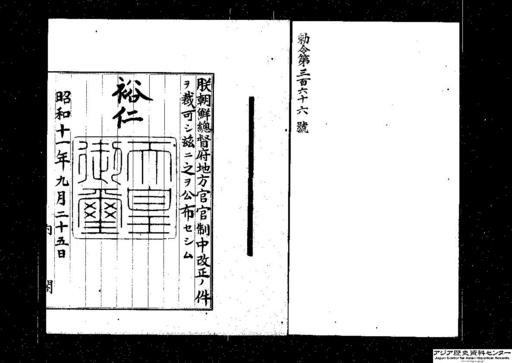 勅令第三百六十六號
朕朝鮮總督府地方官官制中改正ノ件
ヲ裁可シ茲ニ之ヲ公布セシム
裕仁
天皇
御璽
昭和十一年九月二十五日
内閣
アジア歴史資料センター
Japan Center for Asian Historical Records